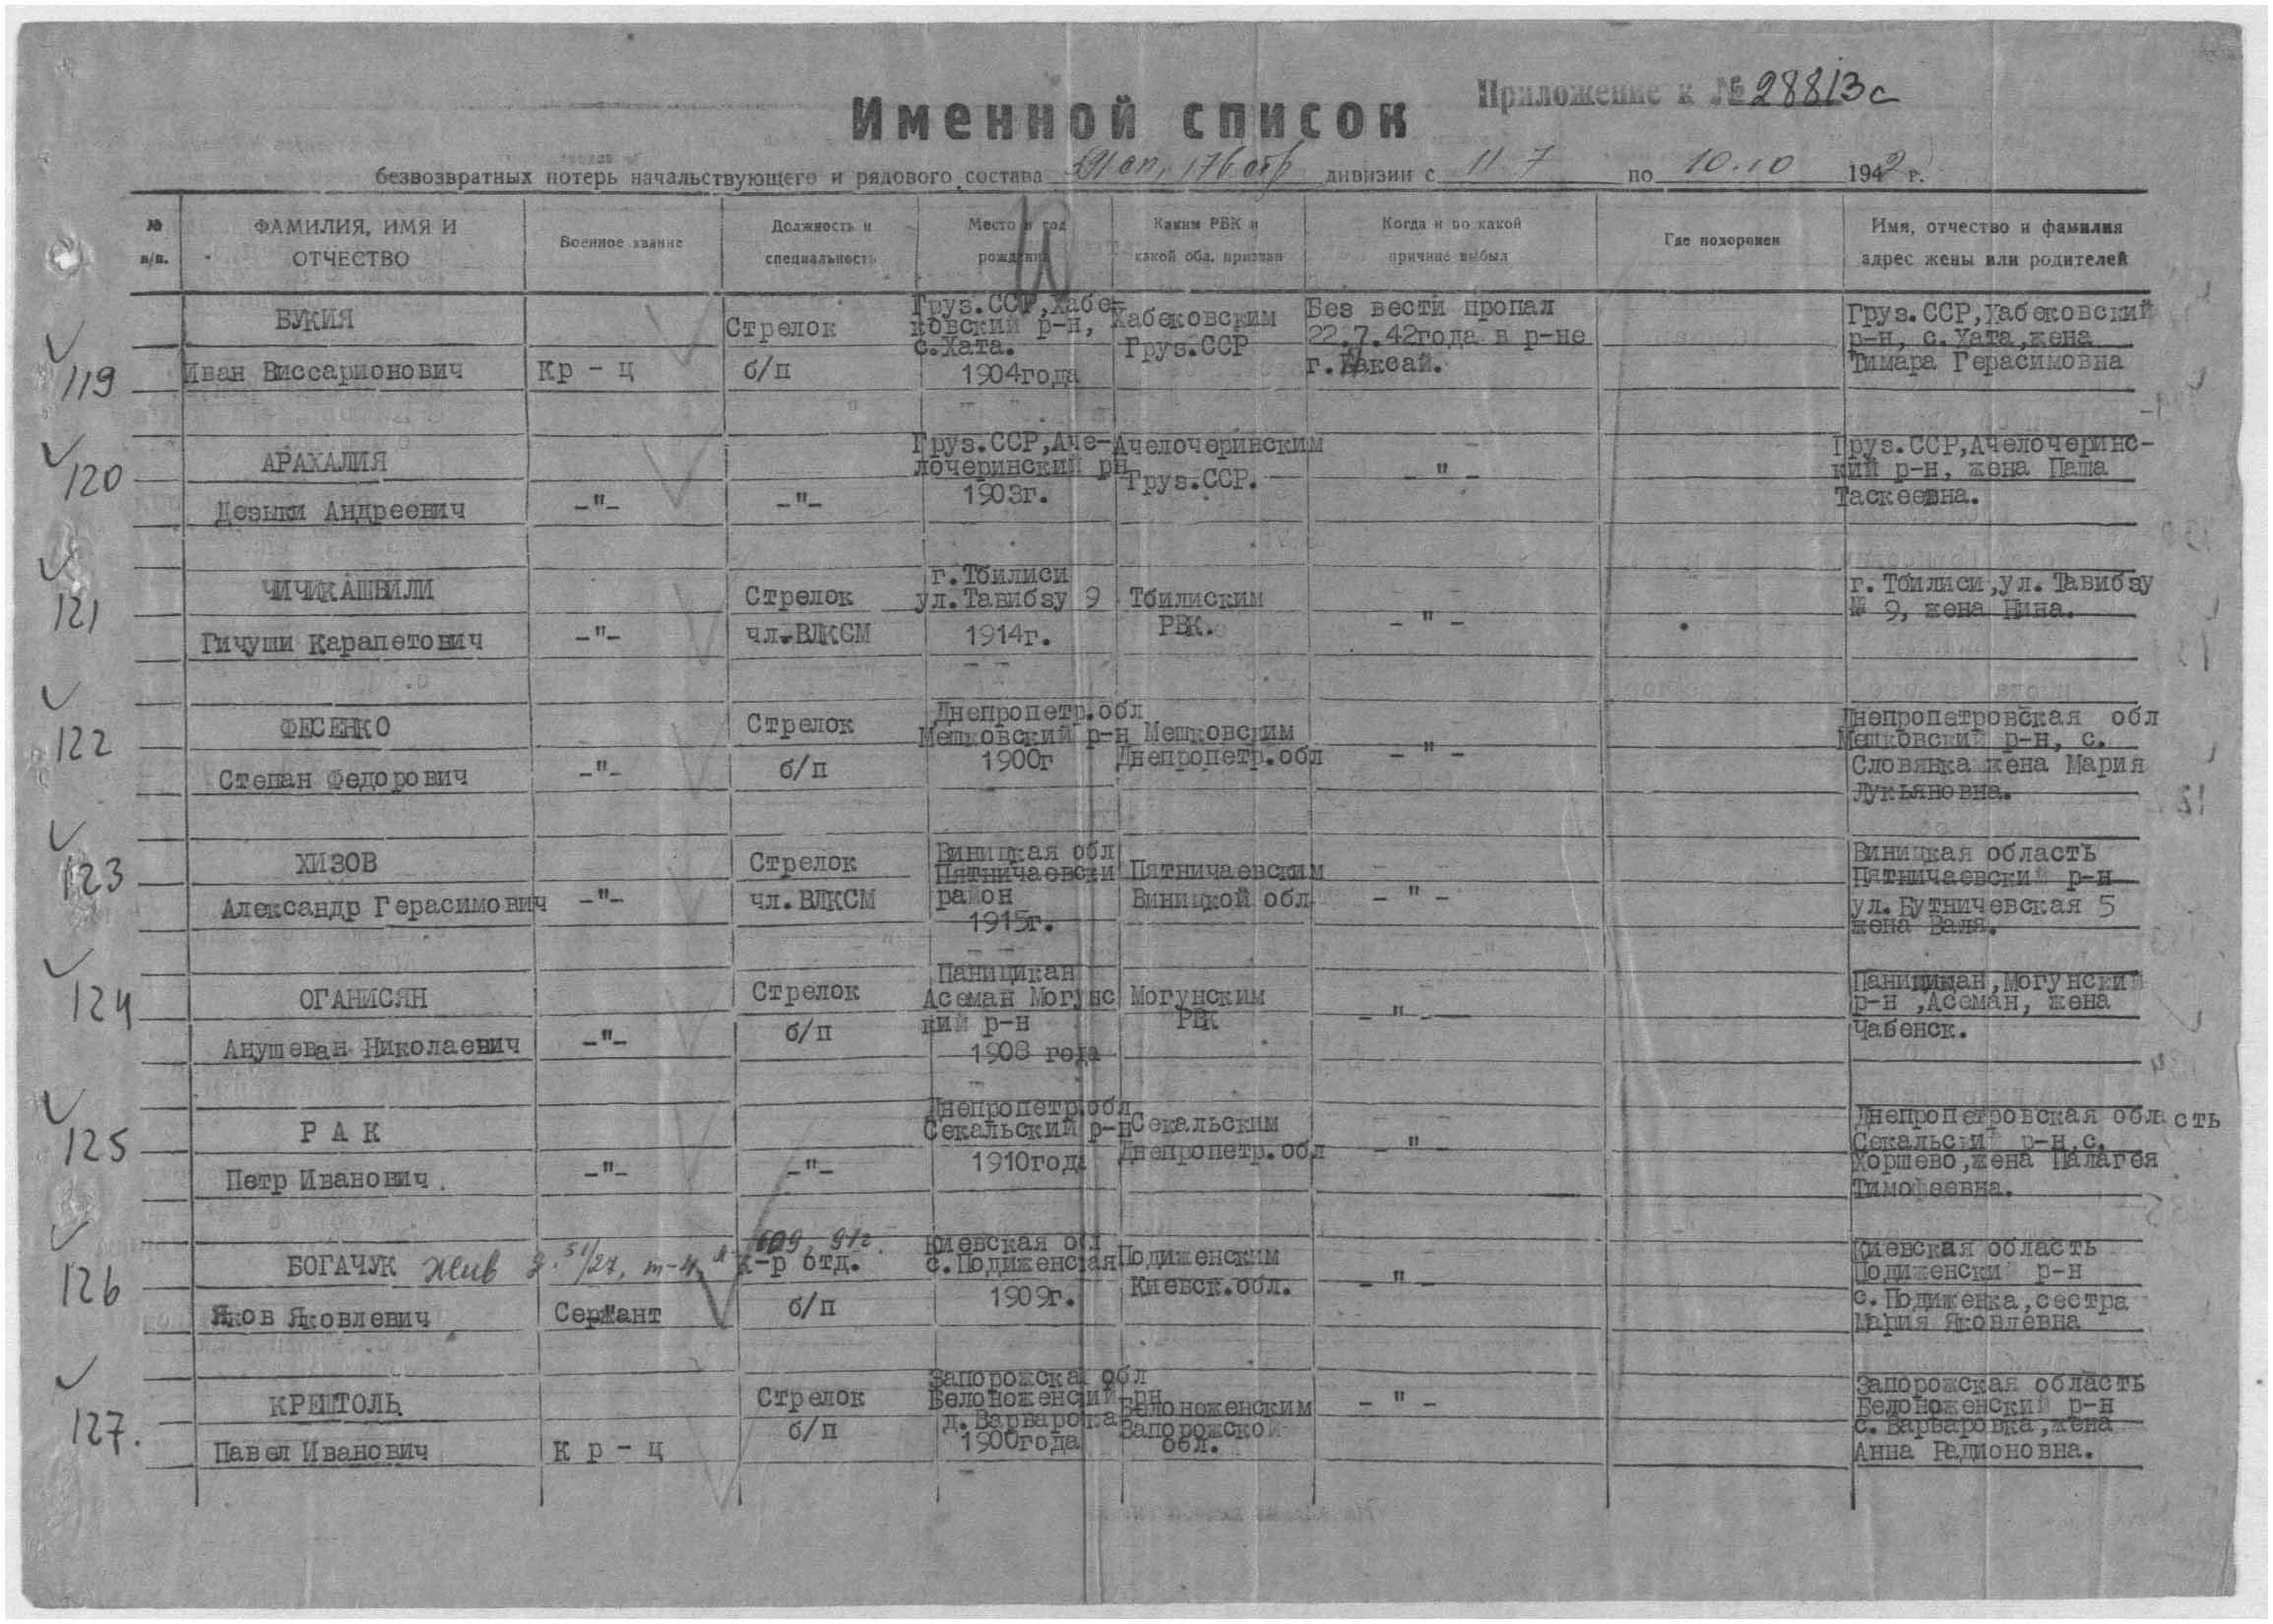 Приложение к № 28813с
Именной список
безвозвратных потерь начальствующего и рядового состава 591 сп, 176 стр дивизии с 11.7 по 10.10 1942 г.
№ п/п.
ФАМИЛИЯ, ИМЯ И ОТЧЕСТВО
Военное звание
Должность и специальность
Место и год рождения
Каким РВК и какой обл. призван
Когда и по какой причине выбыл
Где похоронен
Имя, отчество и фамилия адрес жены или родителей
119
БУКИЯ
Иван Виссарионович
Кр - ц
Стрелок
б/п
Груз.ССР,Хабе-
ковский р-н,
с.Хата.
1904года
Хабековским
Груз.ССР
Без вести пропал
22.7.42года в р-не
г. Аксай.
Груз.ССР,Хабековский
р-н, с.Хата,жена
Тимара Герасимовна
120
АРАХАЛИЯ
Дезыки Андреевич
-"-
-"-
Груз.ССР,Аче-
лочеринский рн
1903г.
Ачелочеринским
Груз.ССР.
- " -
Груз.ССР,Ачелочеринс-
кий р-н, жена Паша
Таскеевна.
121
ЧИЧИКАШВИЛИ
Гичуши Карапетович
-"-
Стрелок
чл.ВЛКСМ
г.Тбилиси
ул.Тавибзу 9
1914г.
Тбилиским
РВК.
- " -
г.Тбилиси,ул.Тавибзу
№ 9, жена Нина.
122
ФЕСЕНКО
Степан Федорович
-"-
Стрелок
б/п
Днепропетр.обл
Мешковский р-н
1900г
Мешковским
Днепропетр.обл
- " -
Днепропетровская обл
Мешковский р-н, с.
Словянка жена Мария
Лукьяновна.
123
ХИЗОВ
Александр Герасимович
-"-
Стрелок
чл.ВЛКСМ
Виницкая обл
Пятничаевски
район
1915г.
Пятничаевским
Виницкой обл
- " -
Виницкая область
Пятничаевский р-н
ул.Бутничевская 5
жена Валя.
124
ОГАНИСЯН
Анушеван Николаевич
-"-
Стрелок
б/п
Паницикан
Асеман Могунс
кий р-н
1908 года
Могунским
РВК
- " -
Паницикан,Могунский
р-н ,Асеман, жена
Чабенск.
125
Р А К
Петр Иванович.
-"-
-"-
Днепропетр.обл
Секальский р-н
1910года
Секальским
Днепропетр.обл
- " -
Днепропетровская область
Секальский р-н,с.
Хоршево,жена Палагея
Тимофеевна.
126
БОГАЧУК жив
Яков Яковлевич
Сержант
к-р отд.
б/п
Киевская обл
с.Подиженская
1909г.
Подиженским
Киевск.обл.
- " -
Киевская область
Подиженский р-н
с.Подиженка,сестра
Мария Яковлевна
127.
КРЕШТОЛЬ
Павел Иванович
К р - ц
Стрелок
б/п
Запорожская обл
Белоноженский рн
д.Варваровка
1900года
Белоноженским
Запорожской
обл.
- " -
Запорожская область
Белоноженский р-н
с.Варваровка,жена
Анна Радионовна.